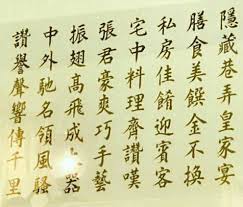 隱藏巷弄皇家宴
膳食美饌金不換
私房佳餚迎賓客
宅中料理齊讚嘆
張君豪爽巧手藝
振翅高飛成大器
中外馳名領風騷
讚譽聲響傳千里